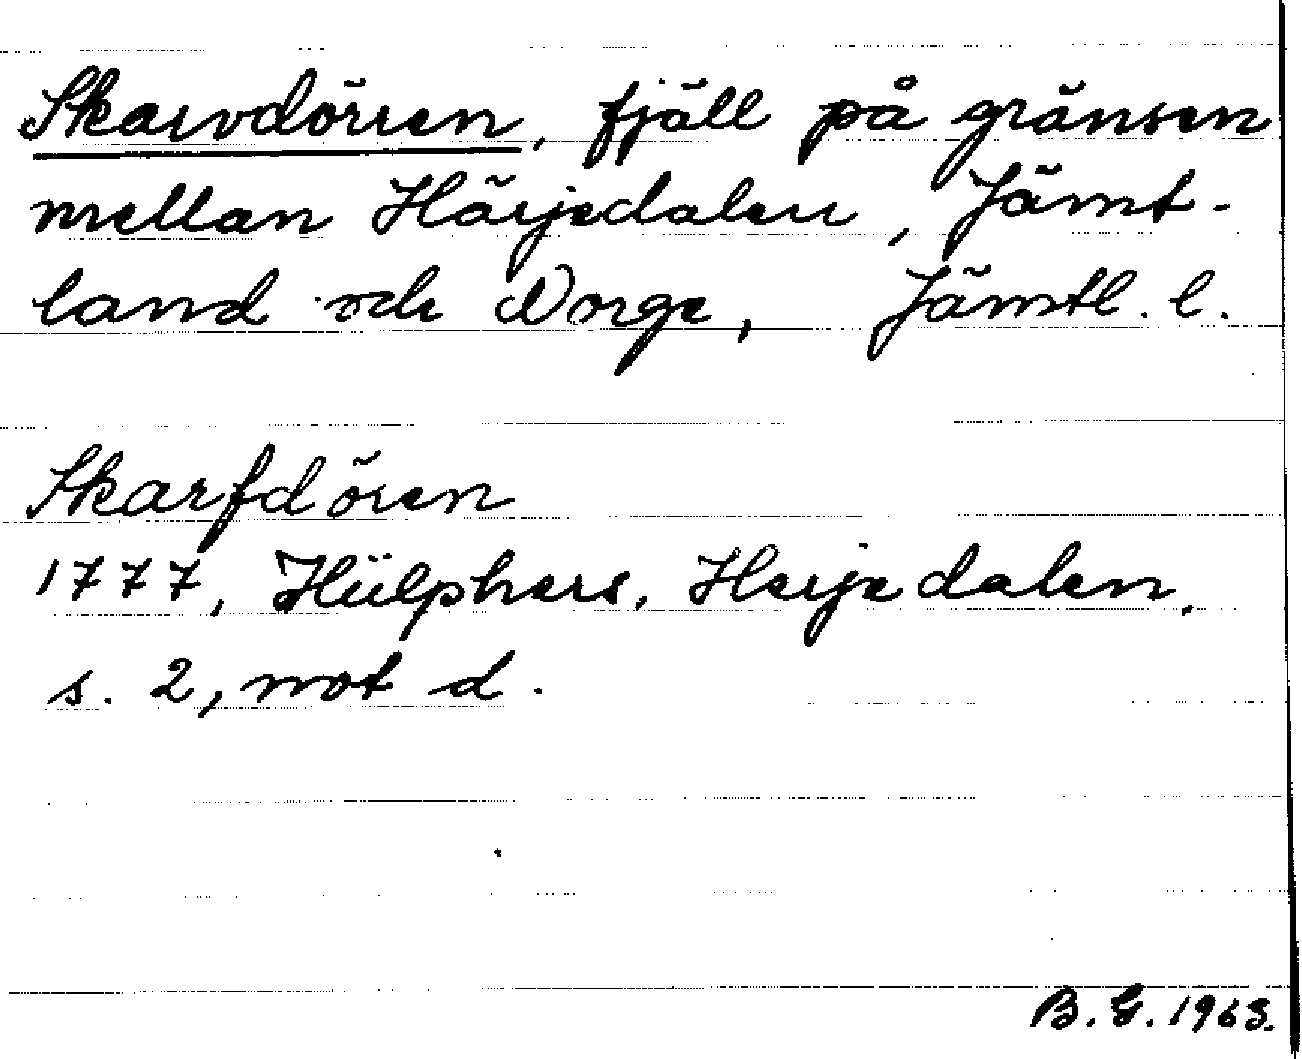 Skarvdörren, fjäll på gränsen
mellan Härjedalen, Jämt-
land och Norge, Jämtl. l.
Skarfdören
1777, Hülphers, Herjedalen,
s. 2, not d.
B. G. 1963.